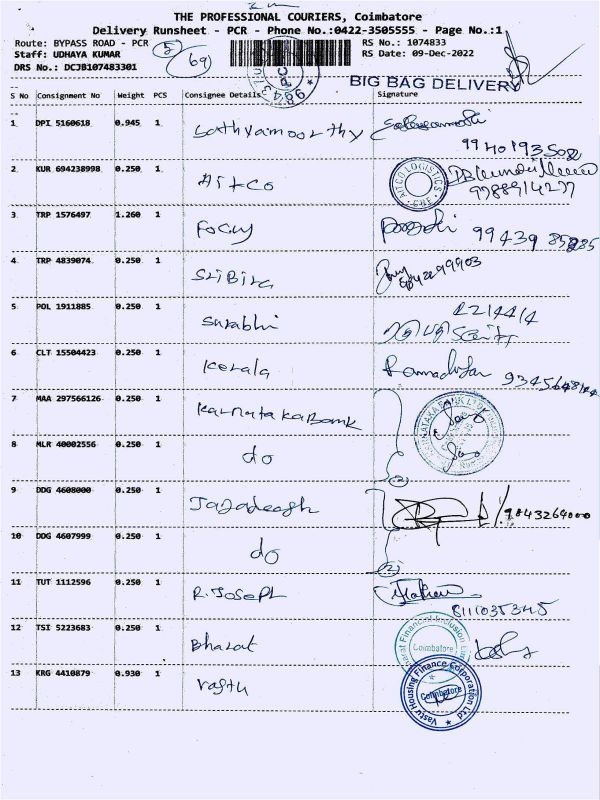 THE PROFESSIONAL COURIERS, Coimbatore
Delivery Runsheet - PCR - Phone No.:0422-3505555 - Page No.:1
Route: BYPASS ROAD - PCR
RS No.: 1074833
Staff: UDHAYA KUMAR
RS Date: 09-Dec-2022
DRS No.: DCJB107483301
5/69
BIG BAG DELIVERY
S No Consignment No Weight PCS Consignee Details Signature
1 DPI 5160618 0.945 1 Sathyamoorthy
2 KUR 694238998 0.250 1 Aitco
AITCO LOGISTICS CBE
9788914277
3 TRP 1576497 1.260 1 Focus
4 TRP 4839074 0.250 1 Sribira
5 POL 1911885 0.250 1 Surabhi
6 CLT 15504423 0.250 1 Kerala
7 MAA 297566126 0.250 1 Karnataka Bank
8 MLR 40002556 0.250 1 do
(2)
9 DDG 4608000 0.250 1 Jagadeesh
9843264000
10 DDG 4607999 0.250 1 do
(2)
11 TUT 1112596 0.250 1 R. Joseph
8111035345
12 TSI 5223683 0.250 1 Bharat
Coimbatore
13 KRG 4410879 0.930 1 Vastu
Vastu Housing Finance Corporation Ltd
Coimbatore